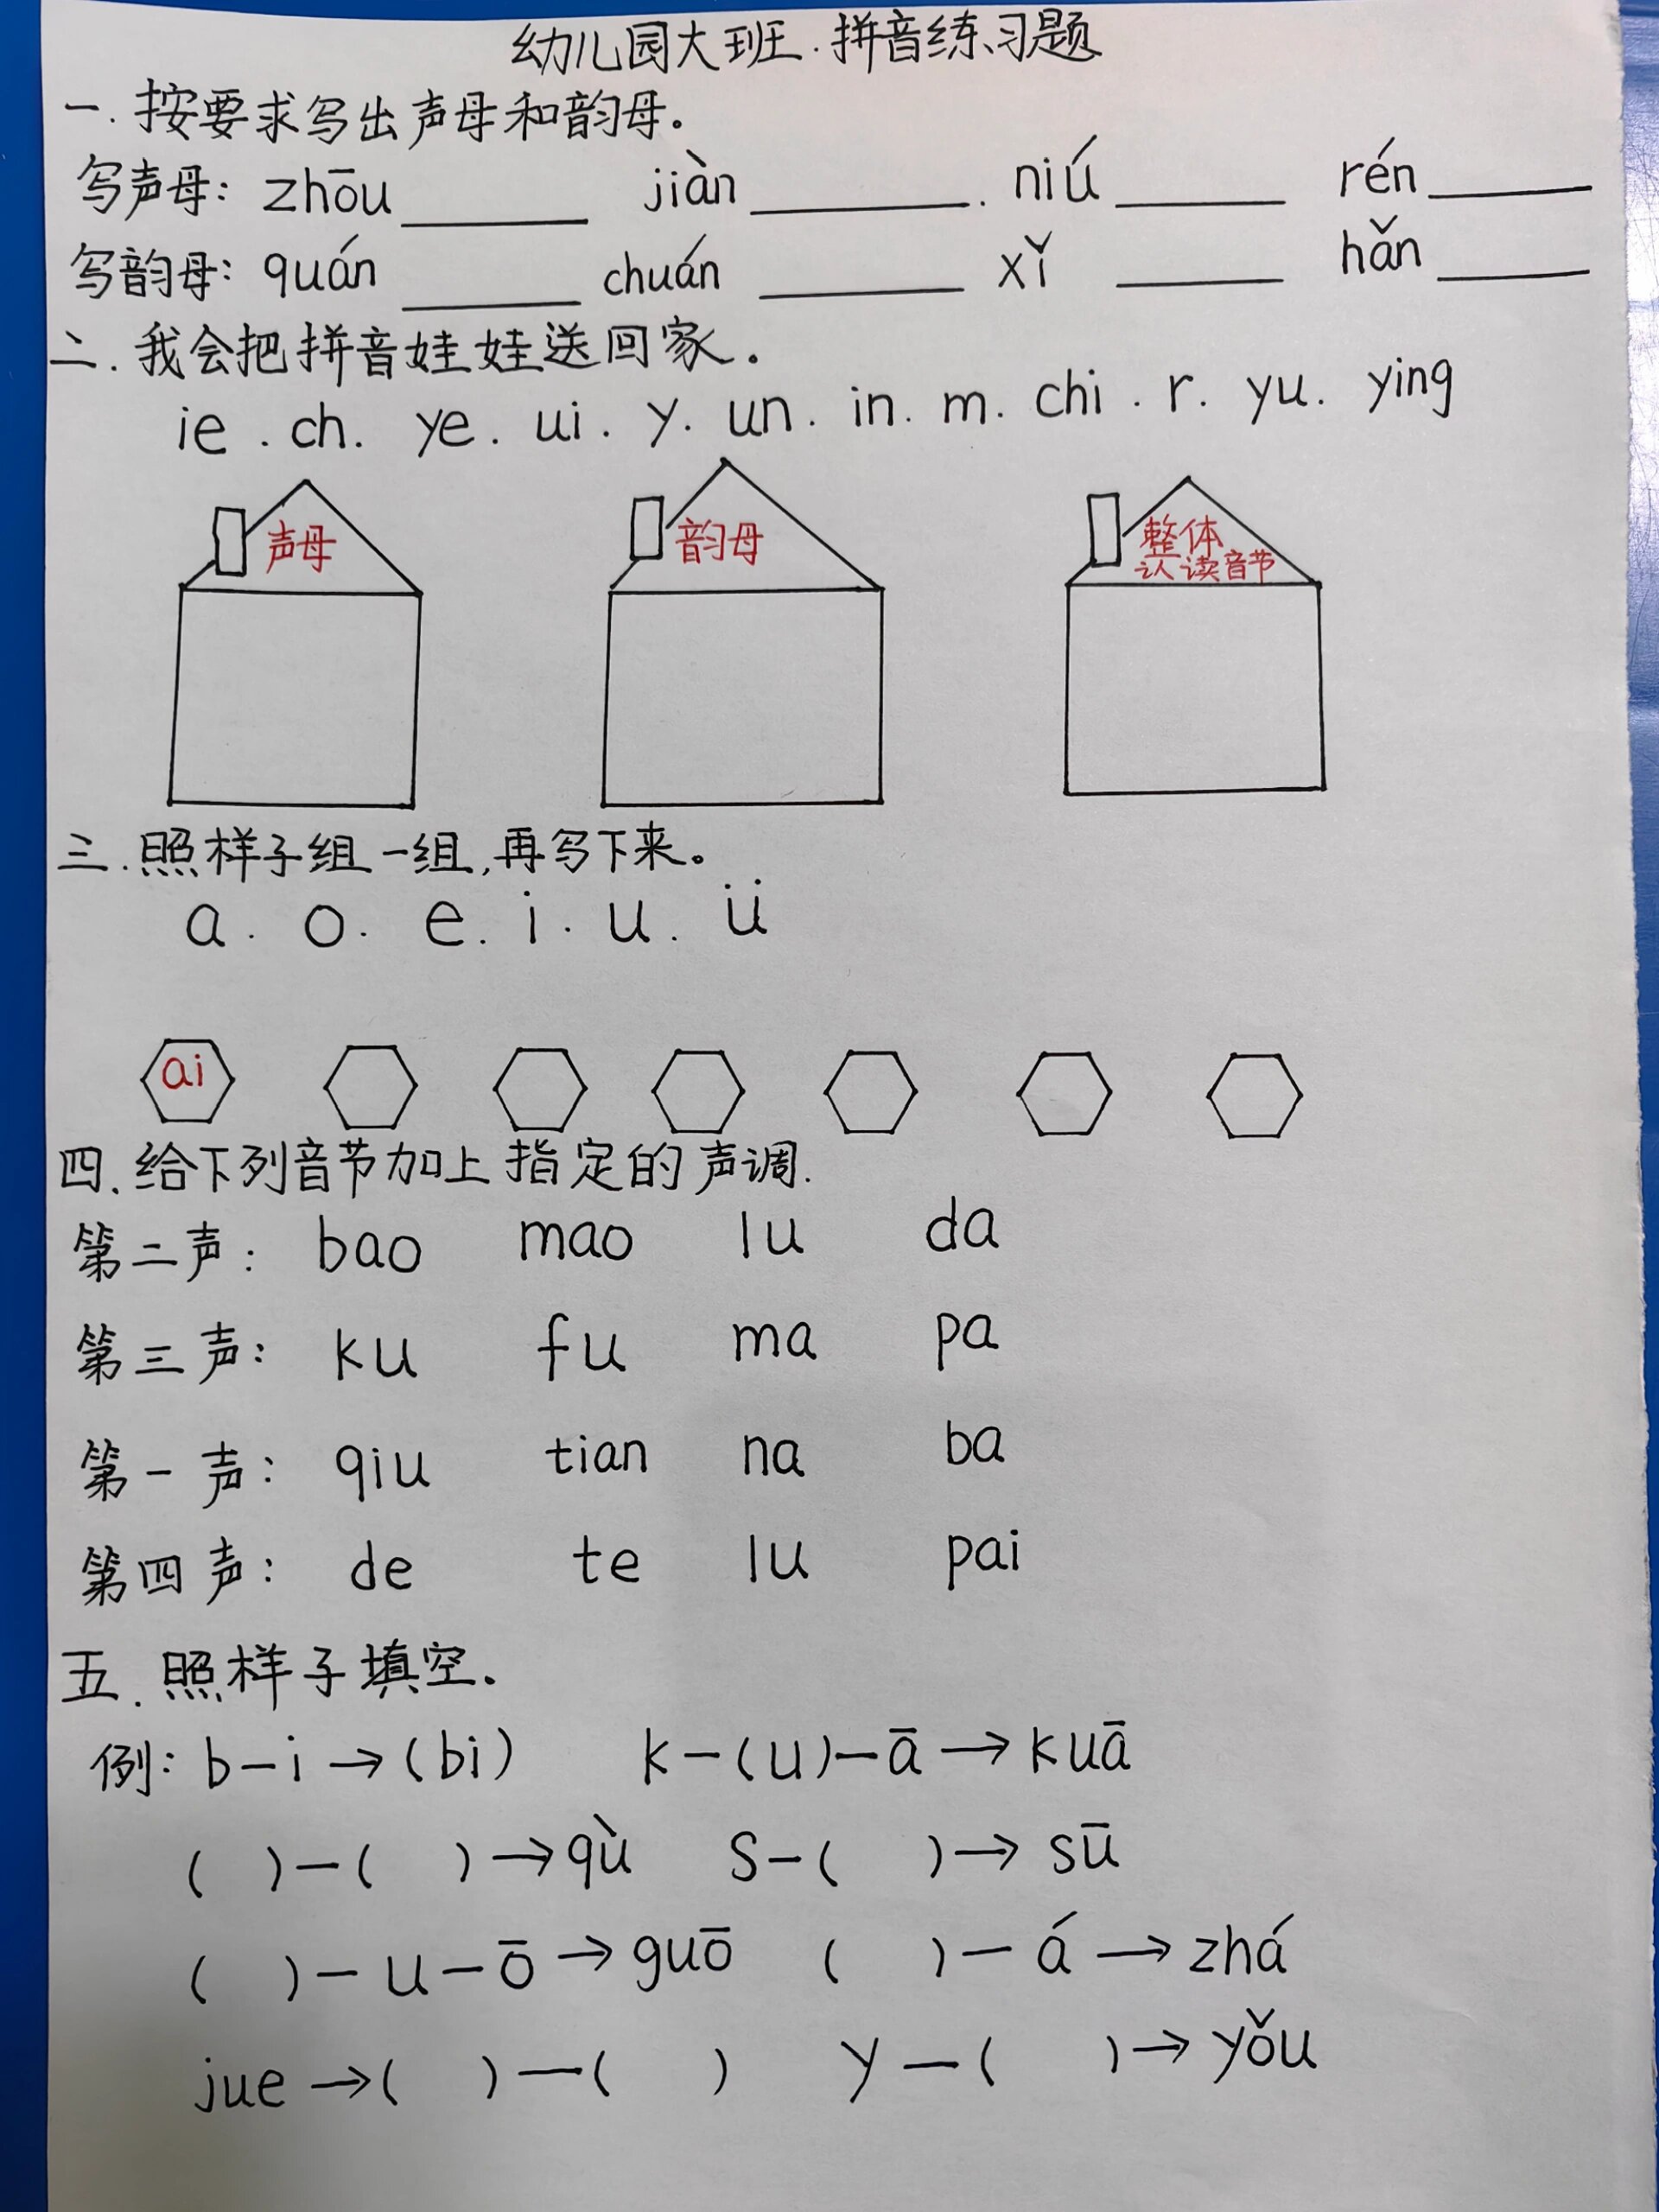 幼儿园大班.拼音练习题
一.按要求写出声母和韵母。
写声母: zhōu______ jiàn______. niú______ rén______
写韵母: quán______ chuán______ xǐ______ hǎn______
二.我会把拼音娃娃送回家。
ie . ch. ye. ui. y. un. in. m. chi . r. yu. ying
声母 韵母 整体
认读音节
三.照样子组一组,再写下来。
a. o. e. i. u. ü
ai
四.给下列音节加上指定的声调.
第二声: bao mao lu da
第三声: ku fu ma pa
第一声: qiu tian na ba
第四声: de te lu pai
五.照样子填空.
例: b-i→(bi) k-(u)-ā→kuā
( )-( )→qù s-( )→sū
( )-u-ō→guō ( )-á→zhá
jue→( )-( ) y-( )→yǒu